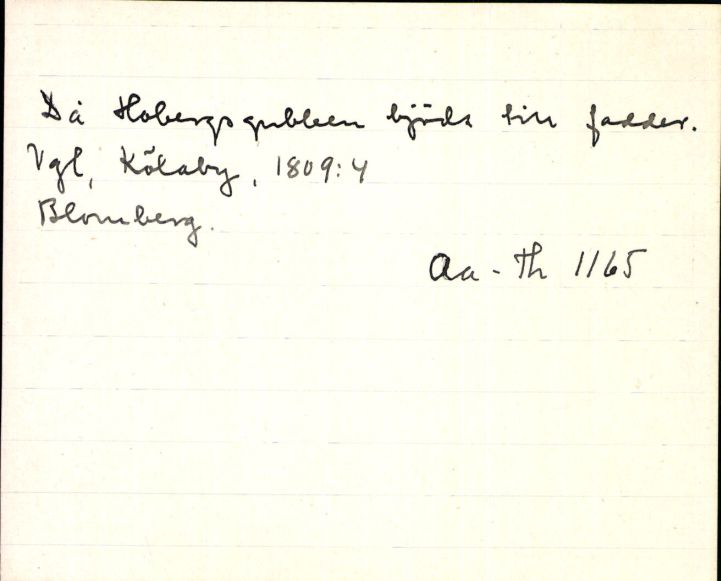 Då Hobergsgubben bjöds till fadder.
Vgl, Kölaby, 1809:4
Blomberg.
Aa-Th 1165